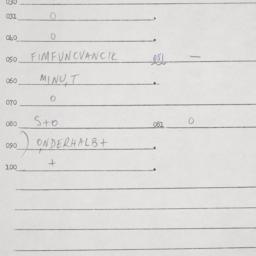 030
031 O
040 O
050 FIMFUNCVANCIE 051 —
060 MINU,T
070 O
080 S+O 081 O
090 ) ONDERHALB+
100 +